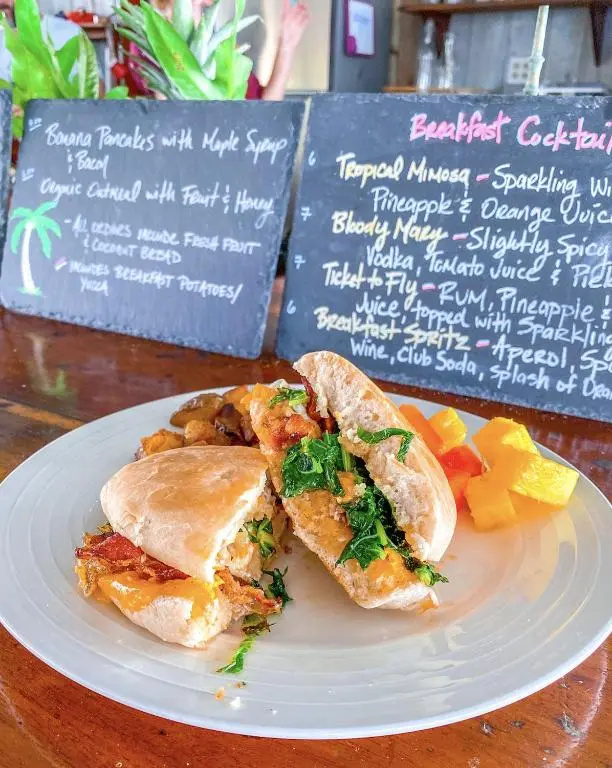 Banana Pancakes with Maple Syrup
& Bacon
Organic Oatmeal with Fruit & Honey
- All orders include fresh fruit
& coconut bread
- includes breakfast potatoes/
yucca
Breakfast Cocktai
6 Tropical Mimosa - Sparkling Wi
Pineapple & Orange Juice
7 Bloody Mary - Slightly Spicy
Vodka, Tomato Juice &
7 Ticket to Fly - Rum, Pineapple &
Juice, topped with Sparkling
6 Breakfast Spritz - Aperol, Spa
Wine, Club Soda, splash of Ora